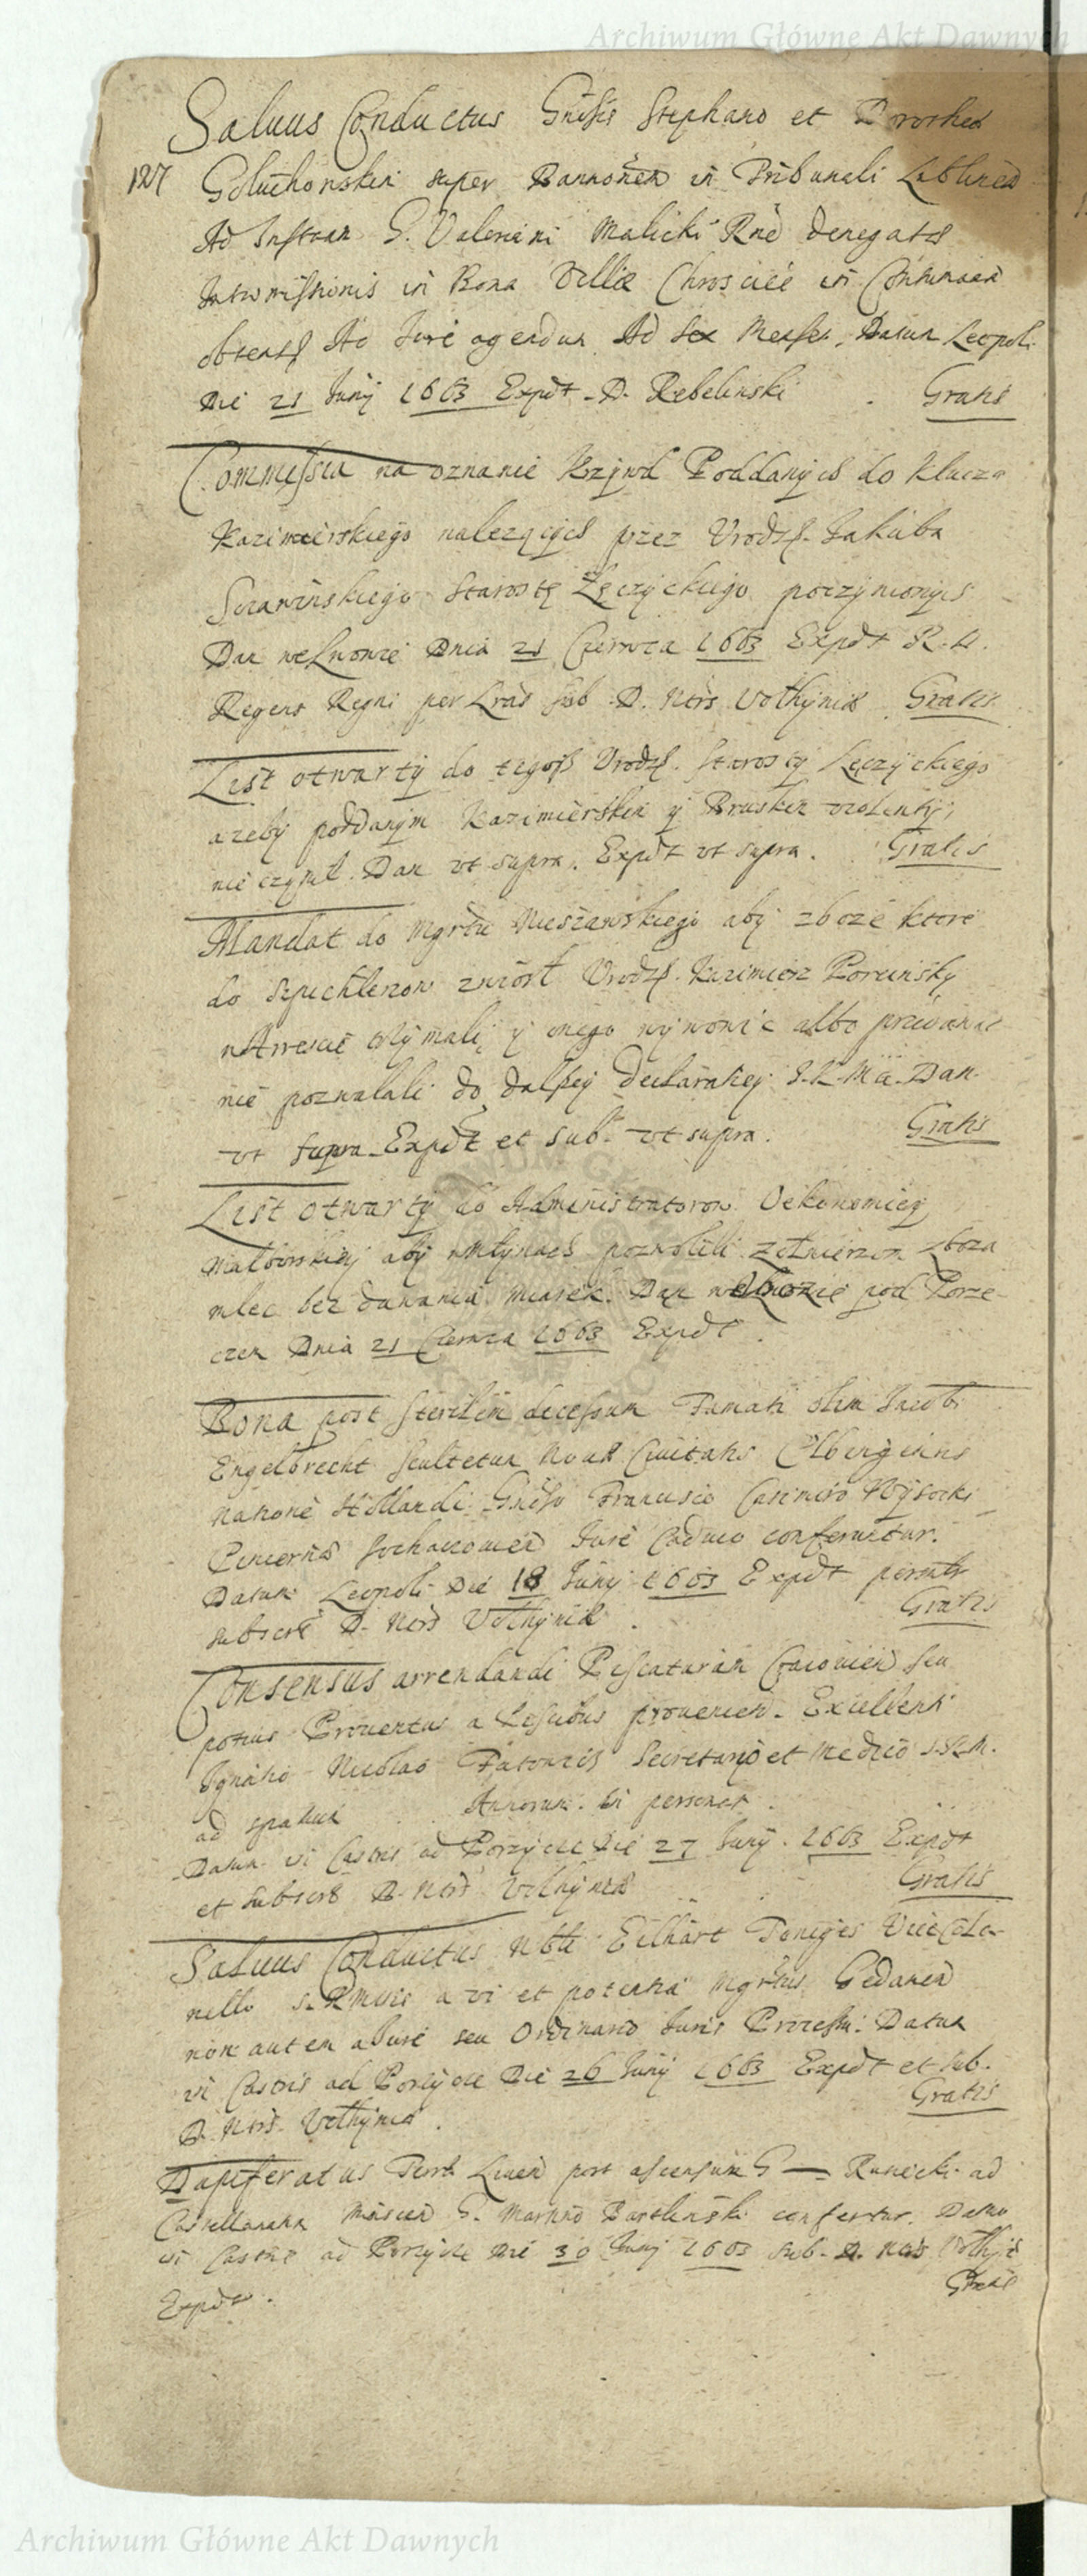 Archiwum Główne Akt Dawnych
Saluus Conductus Gnosis Stephano et Dorothea
127 Goluchowskim super Bannonem in Tribunali Lublinen
Ad Instan G. Valeriani Malicki Rne denegatae
Intromissionis in Bona Villae Chroscice in Contumaciam
obtent Ac Jure agendum Ad sex Menses. Datum Leopoli
Die 21 Junij 1663 Expdt D. Rebelinski. Gratis
Commissia na oznanie Krzywd Poddanych do klucza
Kazimierskiego nalezących przez Vrodz. Jakuba
Szczawinskiego Starostę Łęczyckiego poczynionych
Dan we Lwowie Dnia 21 Czerwca 1663 Expdt R. H.
Regens Regni per Lras sub D. Ntrs Vothynia Gratis
List otwarty do tegoss Vrodz. Starosty Łęczyckiego
azeby poddanym Kazimierskim y Bruskim violentij
nie czynił. Dan vt supra. Expdt vt supra. Gratis
Mandat do Mgrtu Nieszawskiego aby zboze ktore
do szpichlerzow zniosł Vrodz. Kazimierz
w Arrescie trzymali y onego wywozic albo przedawac
nie pozwalali do dalszey declaratiey J.K.Mci. Dan
vt supra Expdt et sub. vt supra. Gratis
List otwarty do Administratorow Oekonomiey
Malborskiey aby w młynach pozwolili zołnierzom zboza
mlec bez dawania miarek. Dan w obozie pod Porze-
czem Dnia 21 Czerwca 1663 Expdt.
Bona post sterilem decessum Famati olim Jacobi
Engelbrecht scultetum Nouae Ciuitatis Elbingensis
natione Hollandi Gnoso Francisco Casimiro Wysocki
Pincernae Sochaczouien Jure Caduco conferuntur.
Datum Leopoli Die 18 Junij 1663 Expdt
subscr D. Ntrs Vothynia. Gratis
Consensus arrendandi Piscaturam Cracouien seu
potius Prouentus a Piscibus prouenien. Excellenti
Ignatio Nicolao Secretario et Medico S.R.M.
ad spatium Annorum. in personat.
Datum in Castris ad Porzycze Die 27 Junij. 1663 Expdt
et subscr D. Ntrs Vothynia Gratis
Saluus Conductus Nbli Eilhart Poniges ViceColo-
nello S.R.Mtis a vi et potentia Mgrtus Gedanen
non autem a Jure seu Ordinario Juris Processu. Datum
in Castris ad Porzycze Die 26 Junij 1663 Expdt et sub.
D. Ntrs Vothynia. Gratis
Dapiferatus Terr. Liuen post ascensum G — Runicki ad
Castellanam G. Martino confertur. Datum
in Castris ad Porzycze Die 30 Junij 1663 sub. D. Ntrs
Expdt. Gratis
Archiwum Główne Akt Dawnych